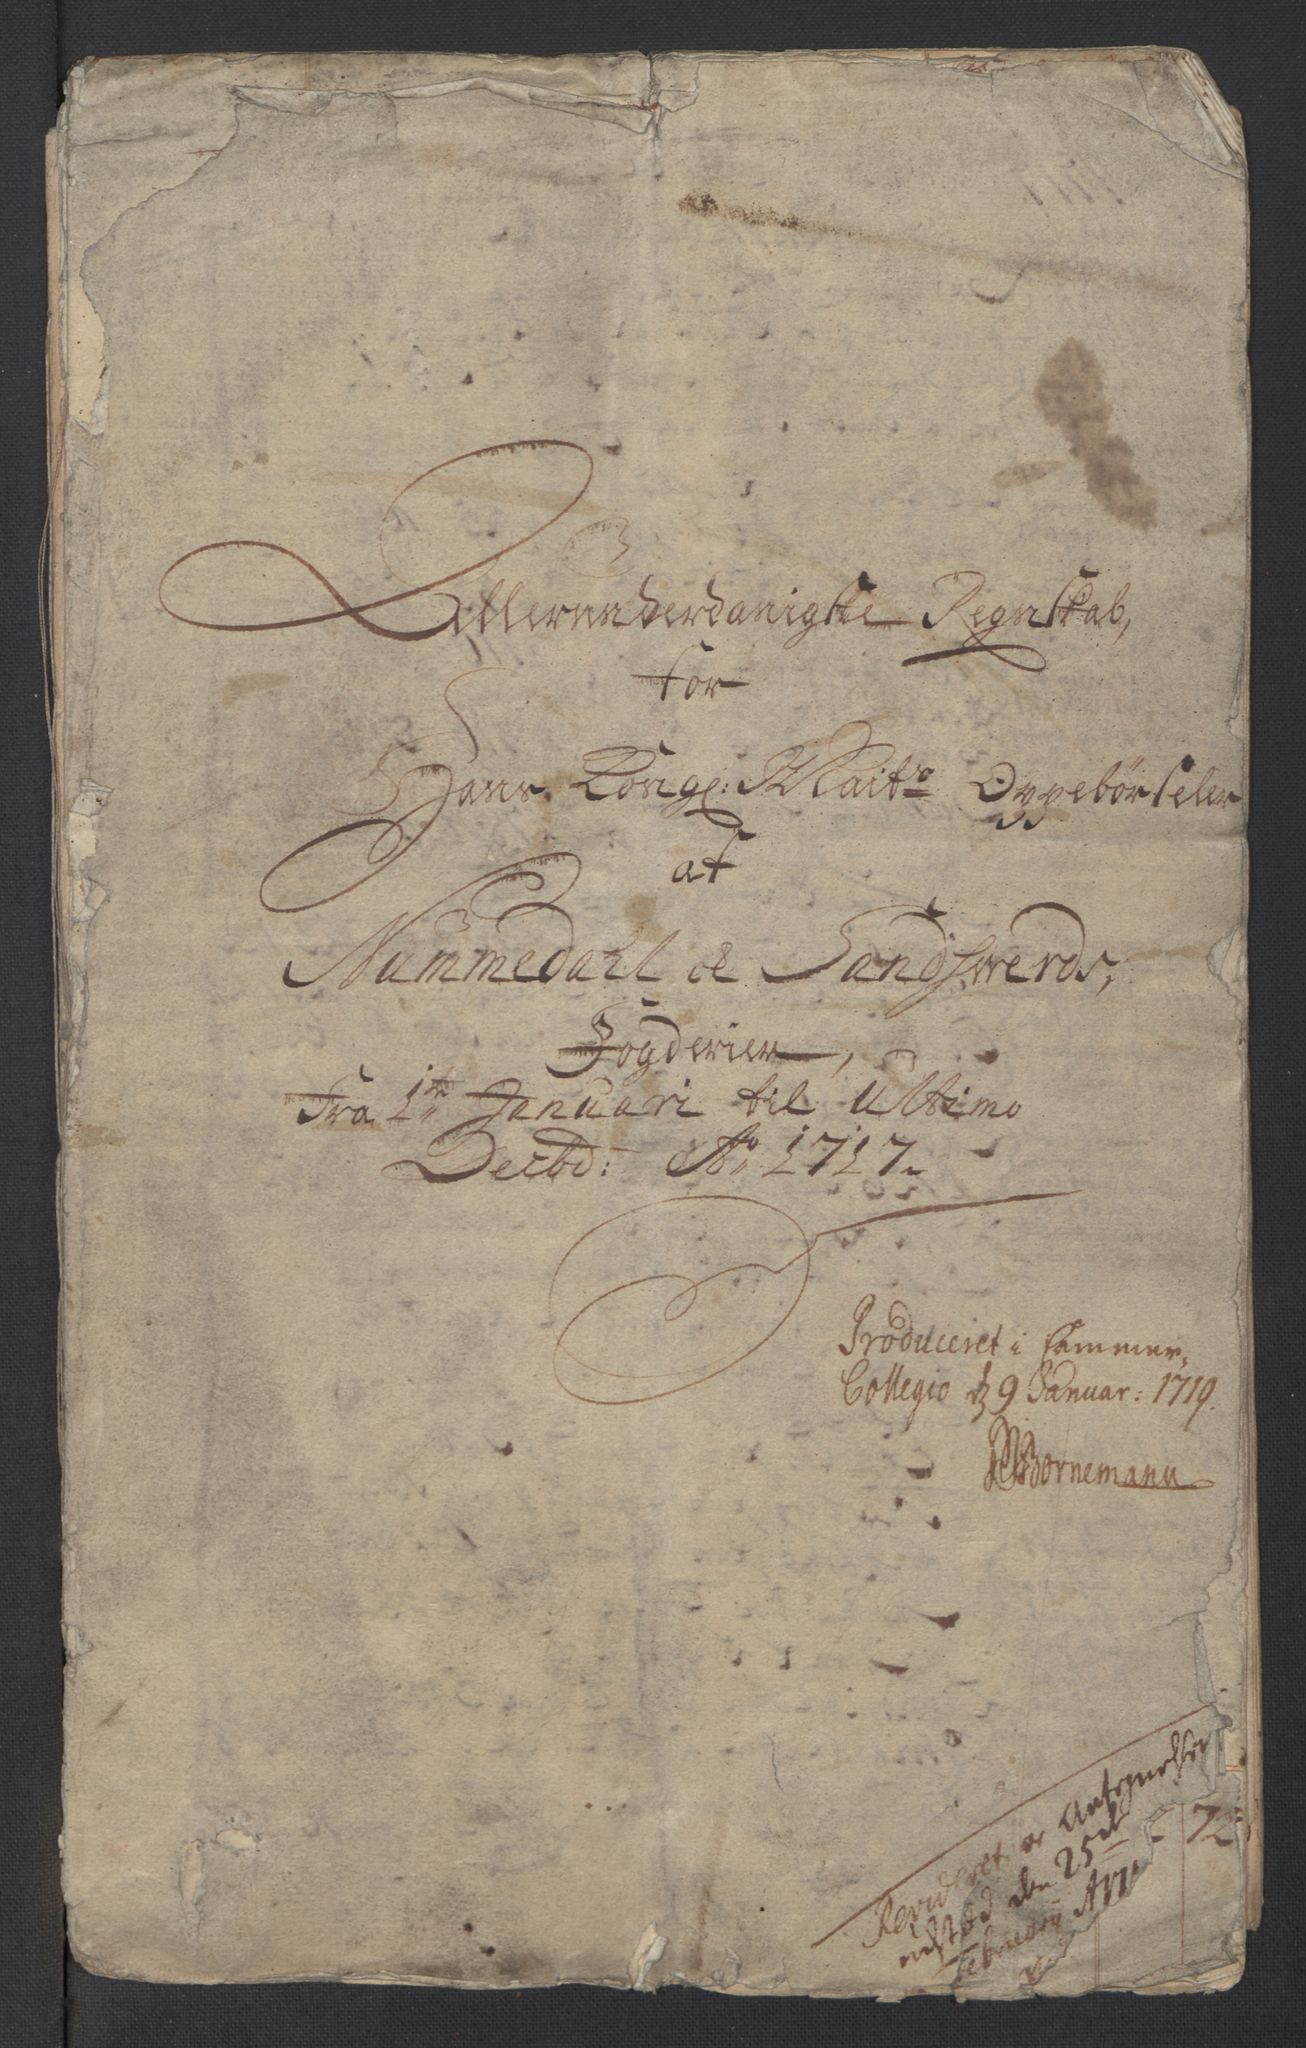 Allerunderdanigste Regnskab,
for
Hans Kongl: Maitz Oppebörseler
af
Nummedahl oc Sandswerds,
Fogderier,
Fra 1te Januari til Ultimo
Decbd: Ao 1717
Produceret i Cammer,
Collegio d 9 Januar: 1719.
Bornemann
Revideret, oc Antegnelser
den 25de
Februarij
72